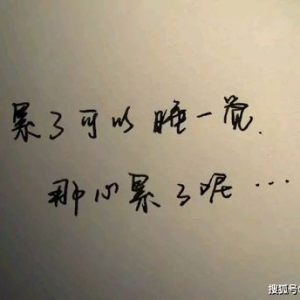 累了可以睡一觉.
那心累了呢…
搜狐号